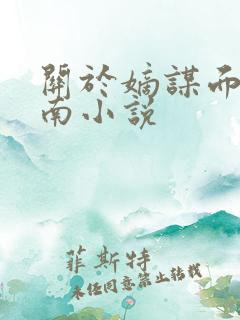 關於嫡謀而
南小說
菲斯特
未经同意禁止转载